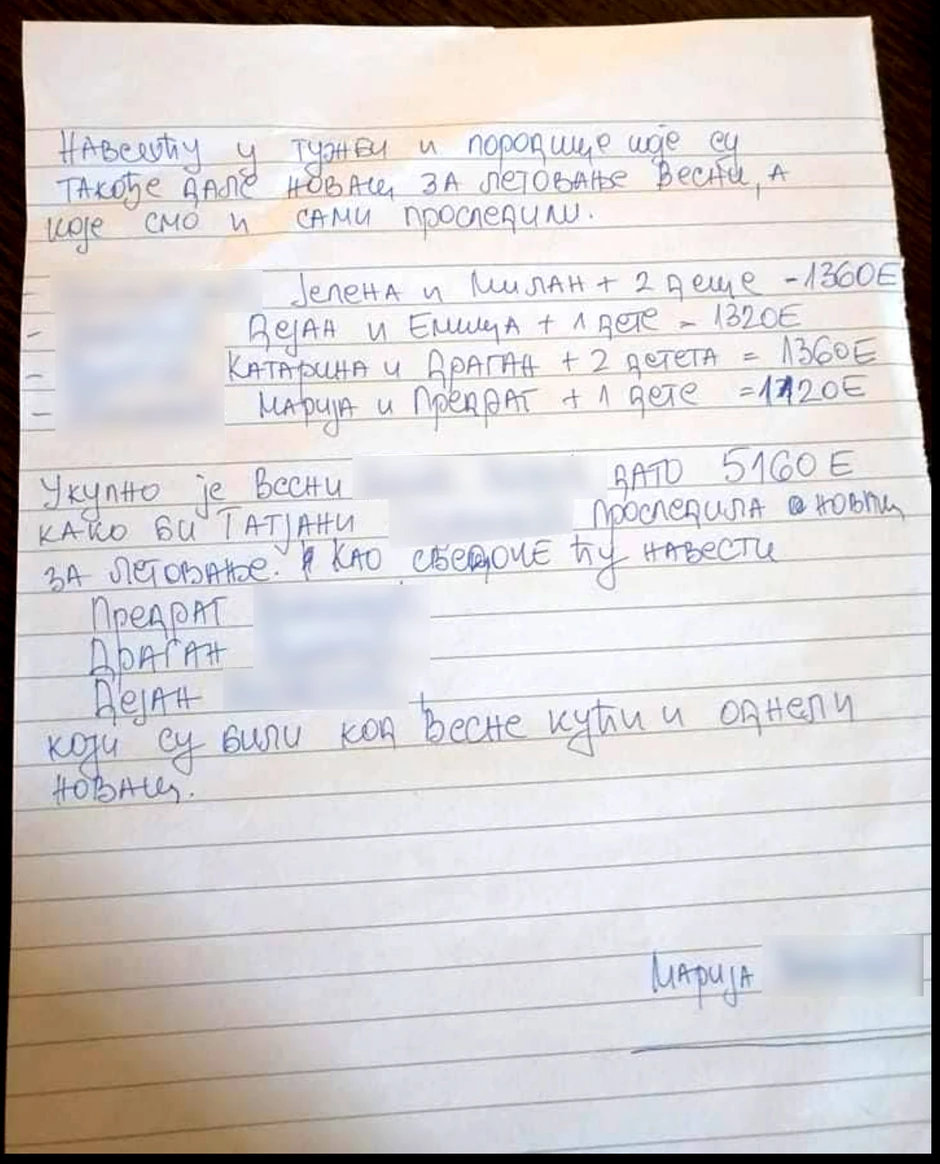 НАВЕШЋУ У ТУЖБИ И ПОРОДИЦЕ КОЈЕ СУ
ТАКОЂЕ ДАЛЕ НОВАЦ ЗА ЛЕТОВАЊЕ ВЕСНИ, А
КОЈЕ СМО И САМИ ПРОСЛЕДИЛИ.
- ЈЕЛЕНА И МИЛАН + 2 ДЕЦЕ - 1360Е
- ДЕЈАН И ЕМИЦА + 1 ДЕТЕ - 1320Е
- КАТАРИНА И ДРАГАН + 2 ДЕТЕТА = 1360Е
- МАРИЈА И ПРЕДРАГ + 1 ДЕТЕ = 1120Е
УКУПНО ЈЕ ВЕСНИ ДАТО 5160 Е
КАКО БИ ТАТЈАНИ ПРОСЛЕДИЛА НОВАЦ
ЗА ЛЕТОВАЊЕ. КАО СВЕДОЧЕ ЋУ НАВЕСТИ
ПРЕДРАГ
ДРАГАН
ДЕЈАН
КОЈИ СУ БИЛИ КОД ВЕСНЕ КУЋИ И ОДНЕЛИ
НОВАЦ.
МАРИЈА